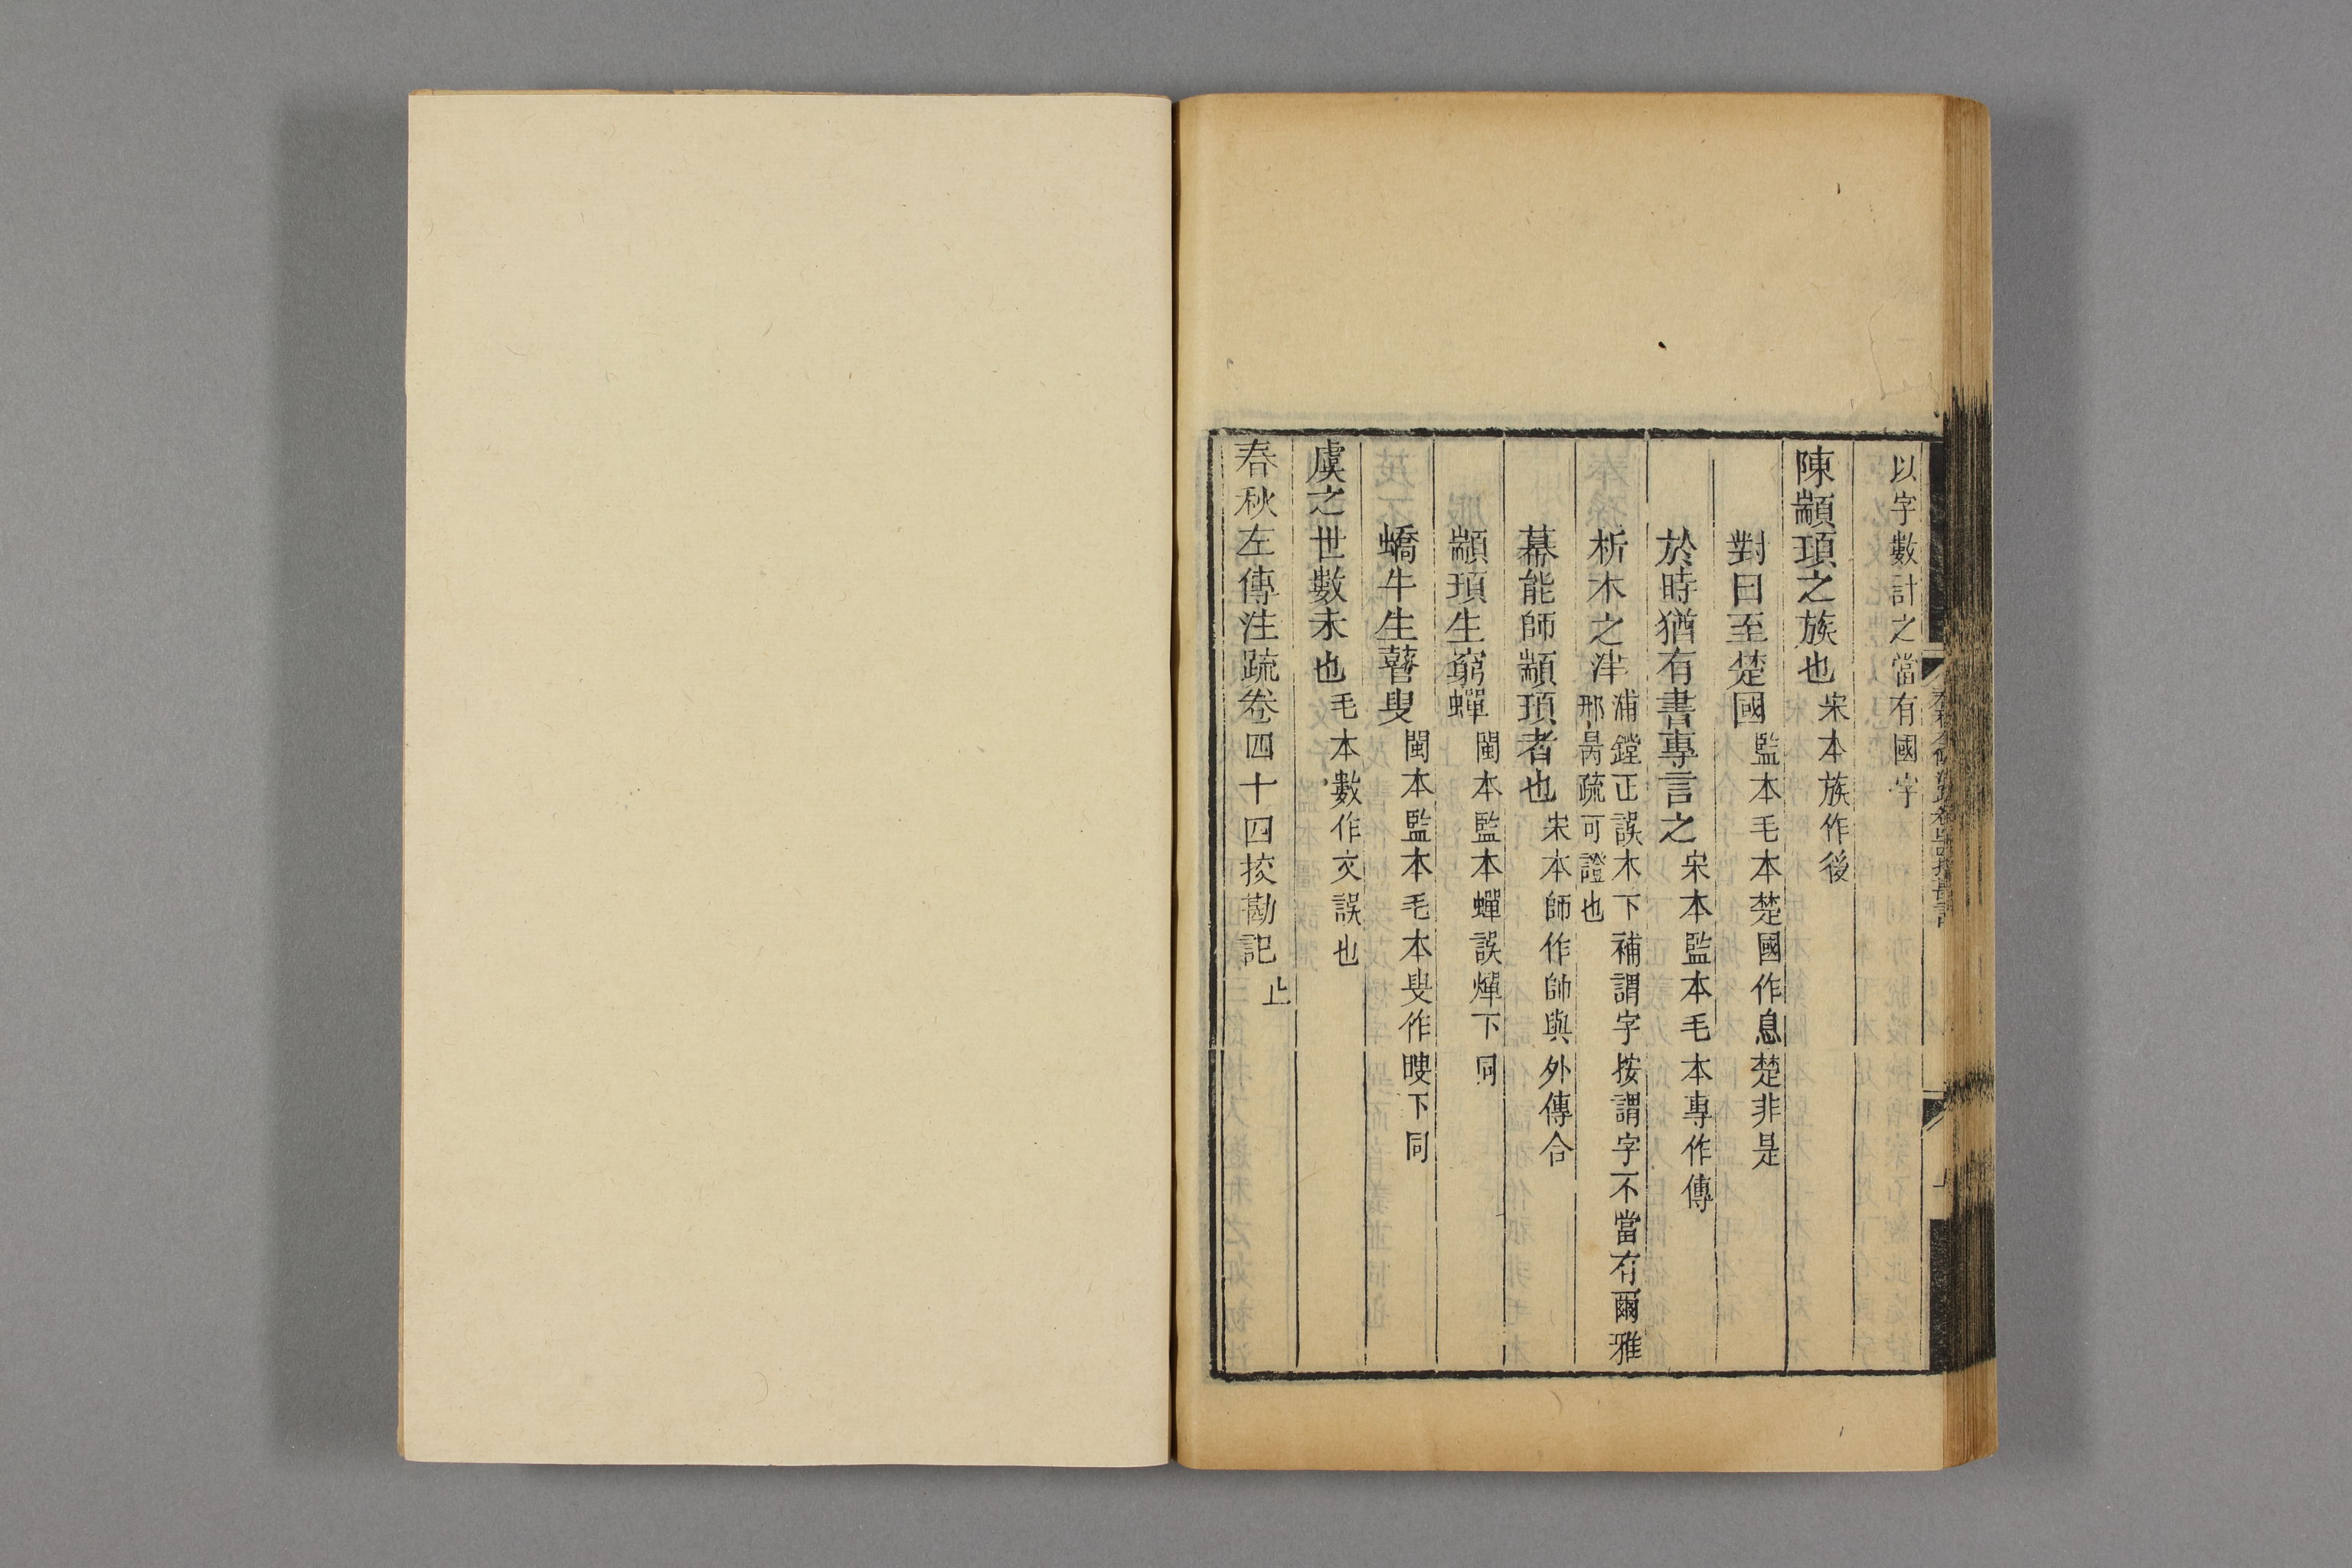 以字數計之當有國字
陳顓頊之族也宋本族作後
對曰至楚國監本毛本楚國作息楚非是
於時猶有書專言之宋本監本毛本專作傳
析木之津浦鏜正誤木下補謂字按謂字不當有爾雅
邢昺疏可證也
幕能師顓頊者也宋本師作帥與外傳合
顓頊生窮蟬閩本監本蟬誤燀下同
蟜牛生瞽叟閩本監本毛本叟作瞍下同
虞之世數未也毛本數作文誤也
春秋左傳注疏卷四十四挍勘記止